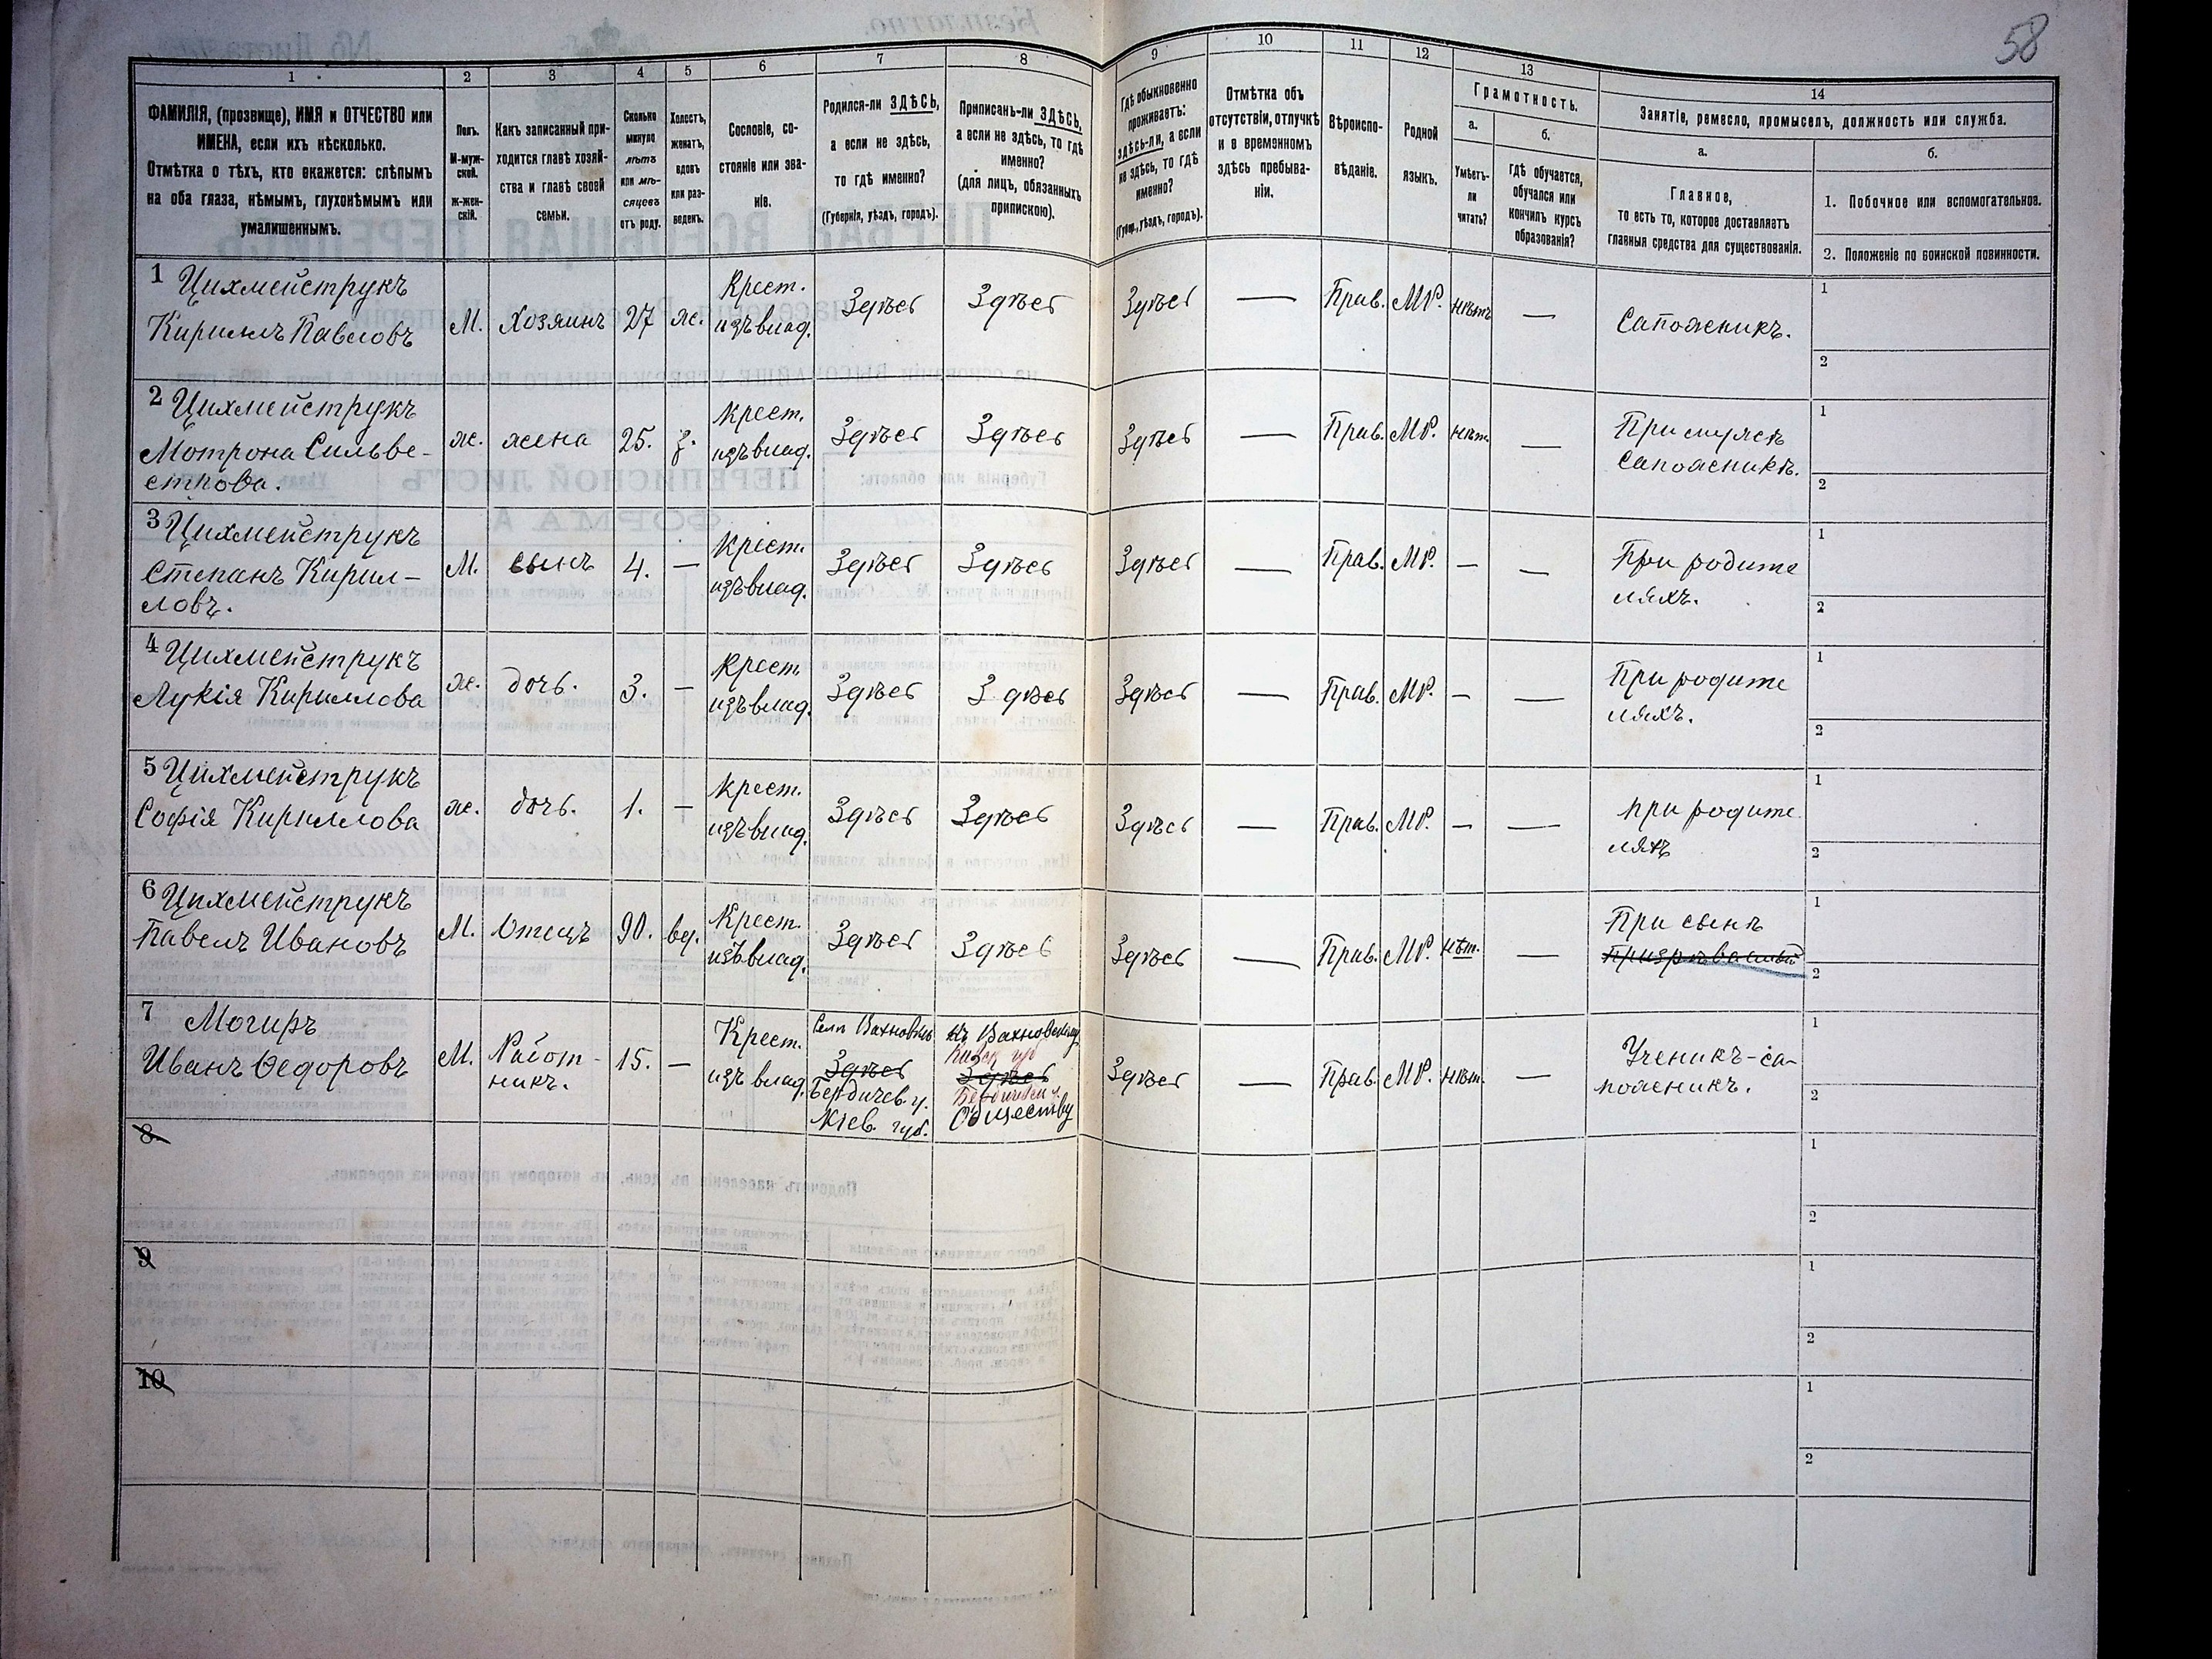 58
1
2
3
4
5
6
7
8
9
10
11
12
13
14
ФАМИЛІЯ, (прозвище), ИМЯ и ОТЧЕСТВО или
ИМЕНА, если ихъ нѣсколько.
Отмѣтка о тѣхъ, кто окажется: слѣпымъ
на оба глаза, нѣмымъ, глухонѣмымъ или
умалишеннымъ.
Полъ.
М-муж-
ской.
ж-жен-
скій.
Какъ записанный при-
ходится главѣ хозяй-
ства и главѣ своей
семьи.
Сколько
минуло
лѣтъ
или мѣ-
сяцевъ
отъ роду.
Холостъ,
женатъ,
вдовъ
или раз-
веденъ.
Сословіе, со-
стояніе или зва-
ніе.
Родился-ли ЗДѢСЬ,
а если не здѣсь,
то гдѣ именно?
(Губернія, уѣздъ, городъ).
Приписанъ-ли ЗДѢСЬ,
а если не здѣсь, то гдѣ
именно?
(для лицъ, обязанныхъ
припискою).
Гдѣ обыкновенно
проживаетъ:
здѣсь-ли, а если
не здѣсь, то гдѣ
именно?
(Губер., уѣздъ, городъ).
Отмѣтка объ
отсутствіи, отлучкѣ
и о временномъ
здѣсь пребыва-
ніи.
Вѣроиспо-
вѣданіе.
Родной
языкъ.
Грамотность.
а.
Умѣетъ-
ли
читать?
б.
гдѣ обучается,
обучался или
кончилъ курсъ
образованія?
Занятіе, ремесло, промыселъ, должность или служба.
а.
Главное,
то есть то, которое доставляетъ
главныя средства для существованія.
б.
1. Побочное или вспомогательное.
2. Положеніе по воинской повинности.
1 Цихмейструкъ
Кириллъ Павловъ
М. Хозяинъ 27 ж. Крест.
изъ влад. Здѣсь Здѣсь Здѣсь — Прав. МР. нѣтъ — Сапожникъ.
1
2
2 Цихмейструкъ
Мотрона Сильве-
строва.
ж. жена 25. з. Крест.
изъ влад. Здѣсь Здѣсь Здѣсь — Прав. МР. нѣт. — При мужѣ
сапожникѣ.
1
2
3 Цихмейструкъ
Степанъ Кирил-
ловъ.
М. сынъ 4. — Крест.
изъ влад. Здѣсь Здѣсь Здѣсь — Прав. МР. — — При родите
ляхъ.
1
2
4 Цихмейструкъ
Лукія Кириллова
ж. дочь. 3. — Крест.
изъ влад. Здѣсь Здѣсь Здѣсь — Прав. МР. — — При родите
ляхъ.
1
2
5 Цихмейструкъ
Софія Кириллова
ж. дочь. 1. — Крест.
изъ влад. Здѣсь Здѣсь Здѣсь — Прав. МР. — — при родите
ляхъ
1
2
6 Цихмейструкъ
Павелъ Ивановъ
М. Отецъ 90. вд. Крест.
изъ влад. Здѣсь Здѣсь Здѣсь — Прав. МР. нѣт. — При сынѣ
Призрѣваемый
1
2
7 Могиръ
Иванъ Ѳедоровъ
М. Работ-
никъ. 15. — Крест.
изъ влад.
Село Вахновкѣ
Здѣсь
Бердичев. у.
Кіев. губ.
къ Вахновскому
Киев. губ
Здѣсь
Бердичев. у.
Обществу
Здѣсь — Прав. МР. нѣт. — Ученикъ-са-
пожникъ.
1
2
8
1
2
9
1
2
10
1
2